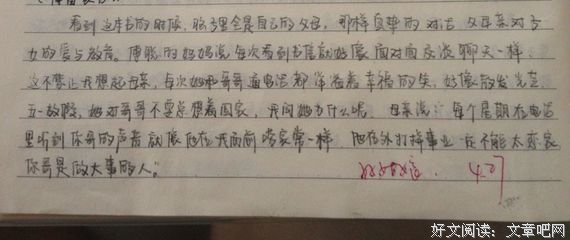 看到这本书的时候，脑子里全是自己的父母，那样真挚的对话，父母亲对子
女的爱与教育。傅聪的妈妈说每次看到书信就好像面对面交谈聊天一样，
这不禁让我想起母亲，每次她和哥哥通电话都洋溢着幸福的笑，好像
五一放假，她对哥哥不要总想着回家，我问她为什么呢，母亲说：每个星期在电话
里听到你哥的声音就像他在我面前唠家常一样，他在外打拼事业一定不能太恋家
你哥是做大事的人。
4.27
好文阅读：文章吧网